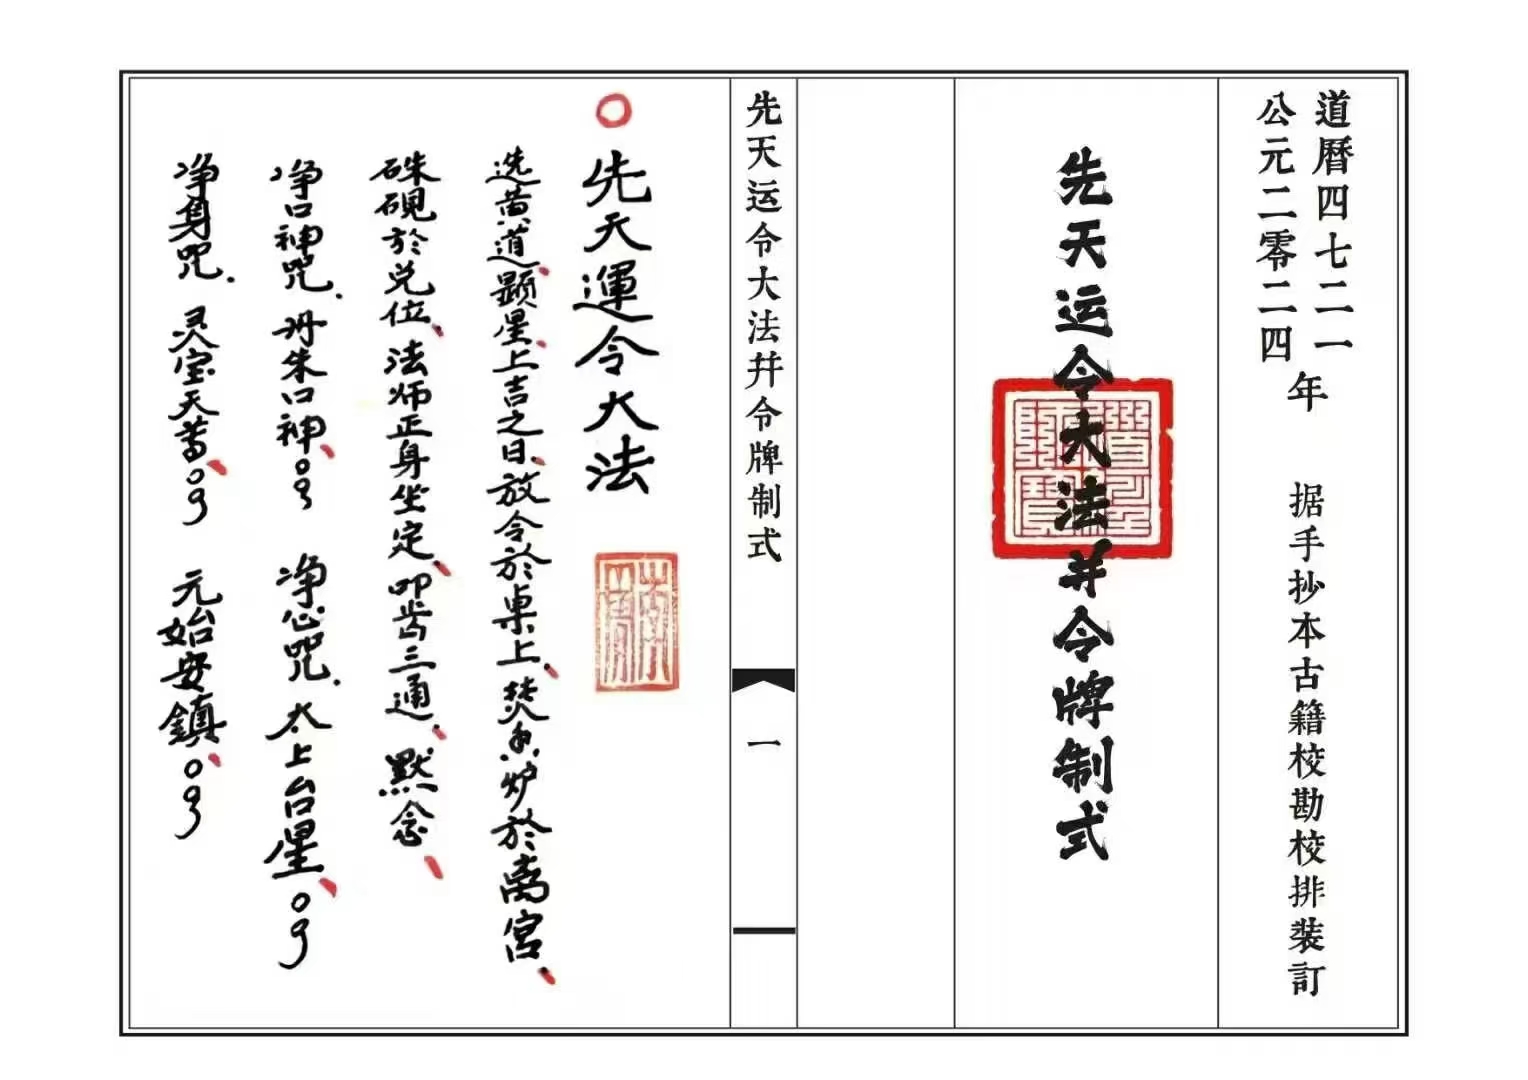 道曆四七二一
公元二零二四
年
据手抄本古籍校勘校排装訂
先天运令大法并令牌制式
先天运令大法并令牌制式
一
先天運令大法
选黄道顕星上吉之日、放令於桌上、焚香炉於离宫、
硃硯於兑位、法师正身坐定、叩齿三通、默念、
净口神咒.丹朱口神、○○9 净心咒.太上台星、○○9
净身咒.灵宝天尊、○○9 元始安鎮、○○9